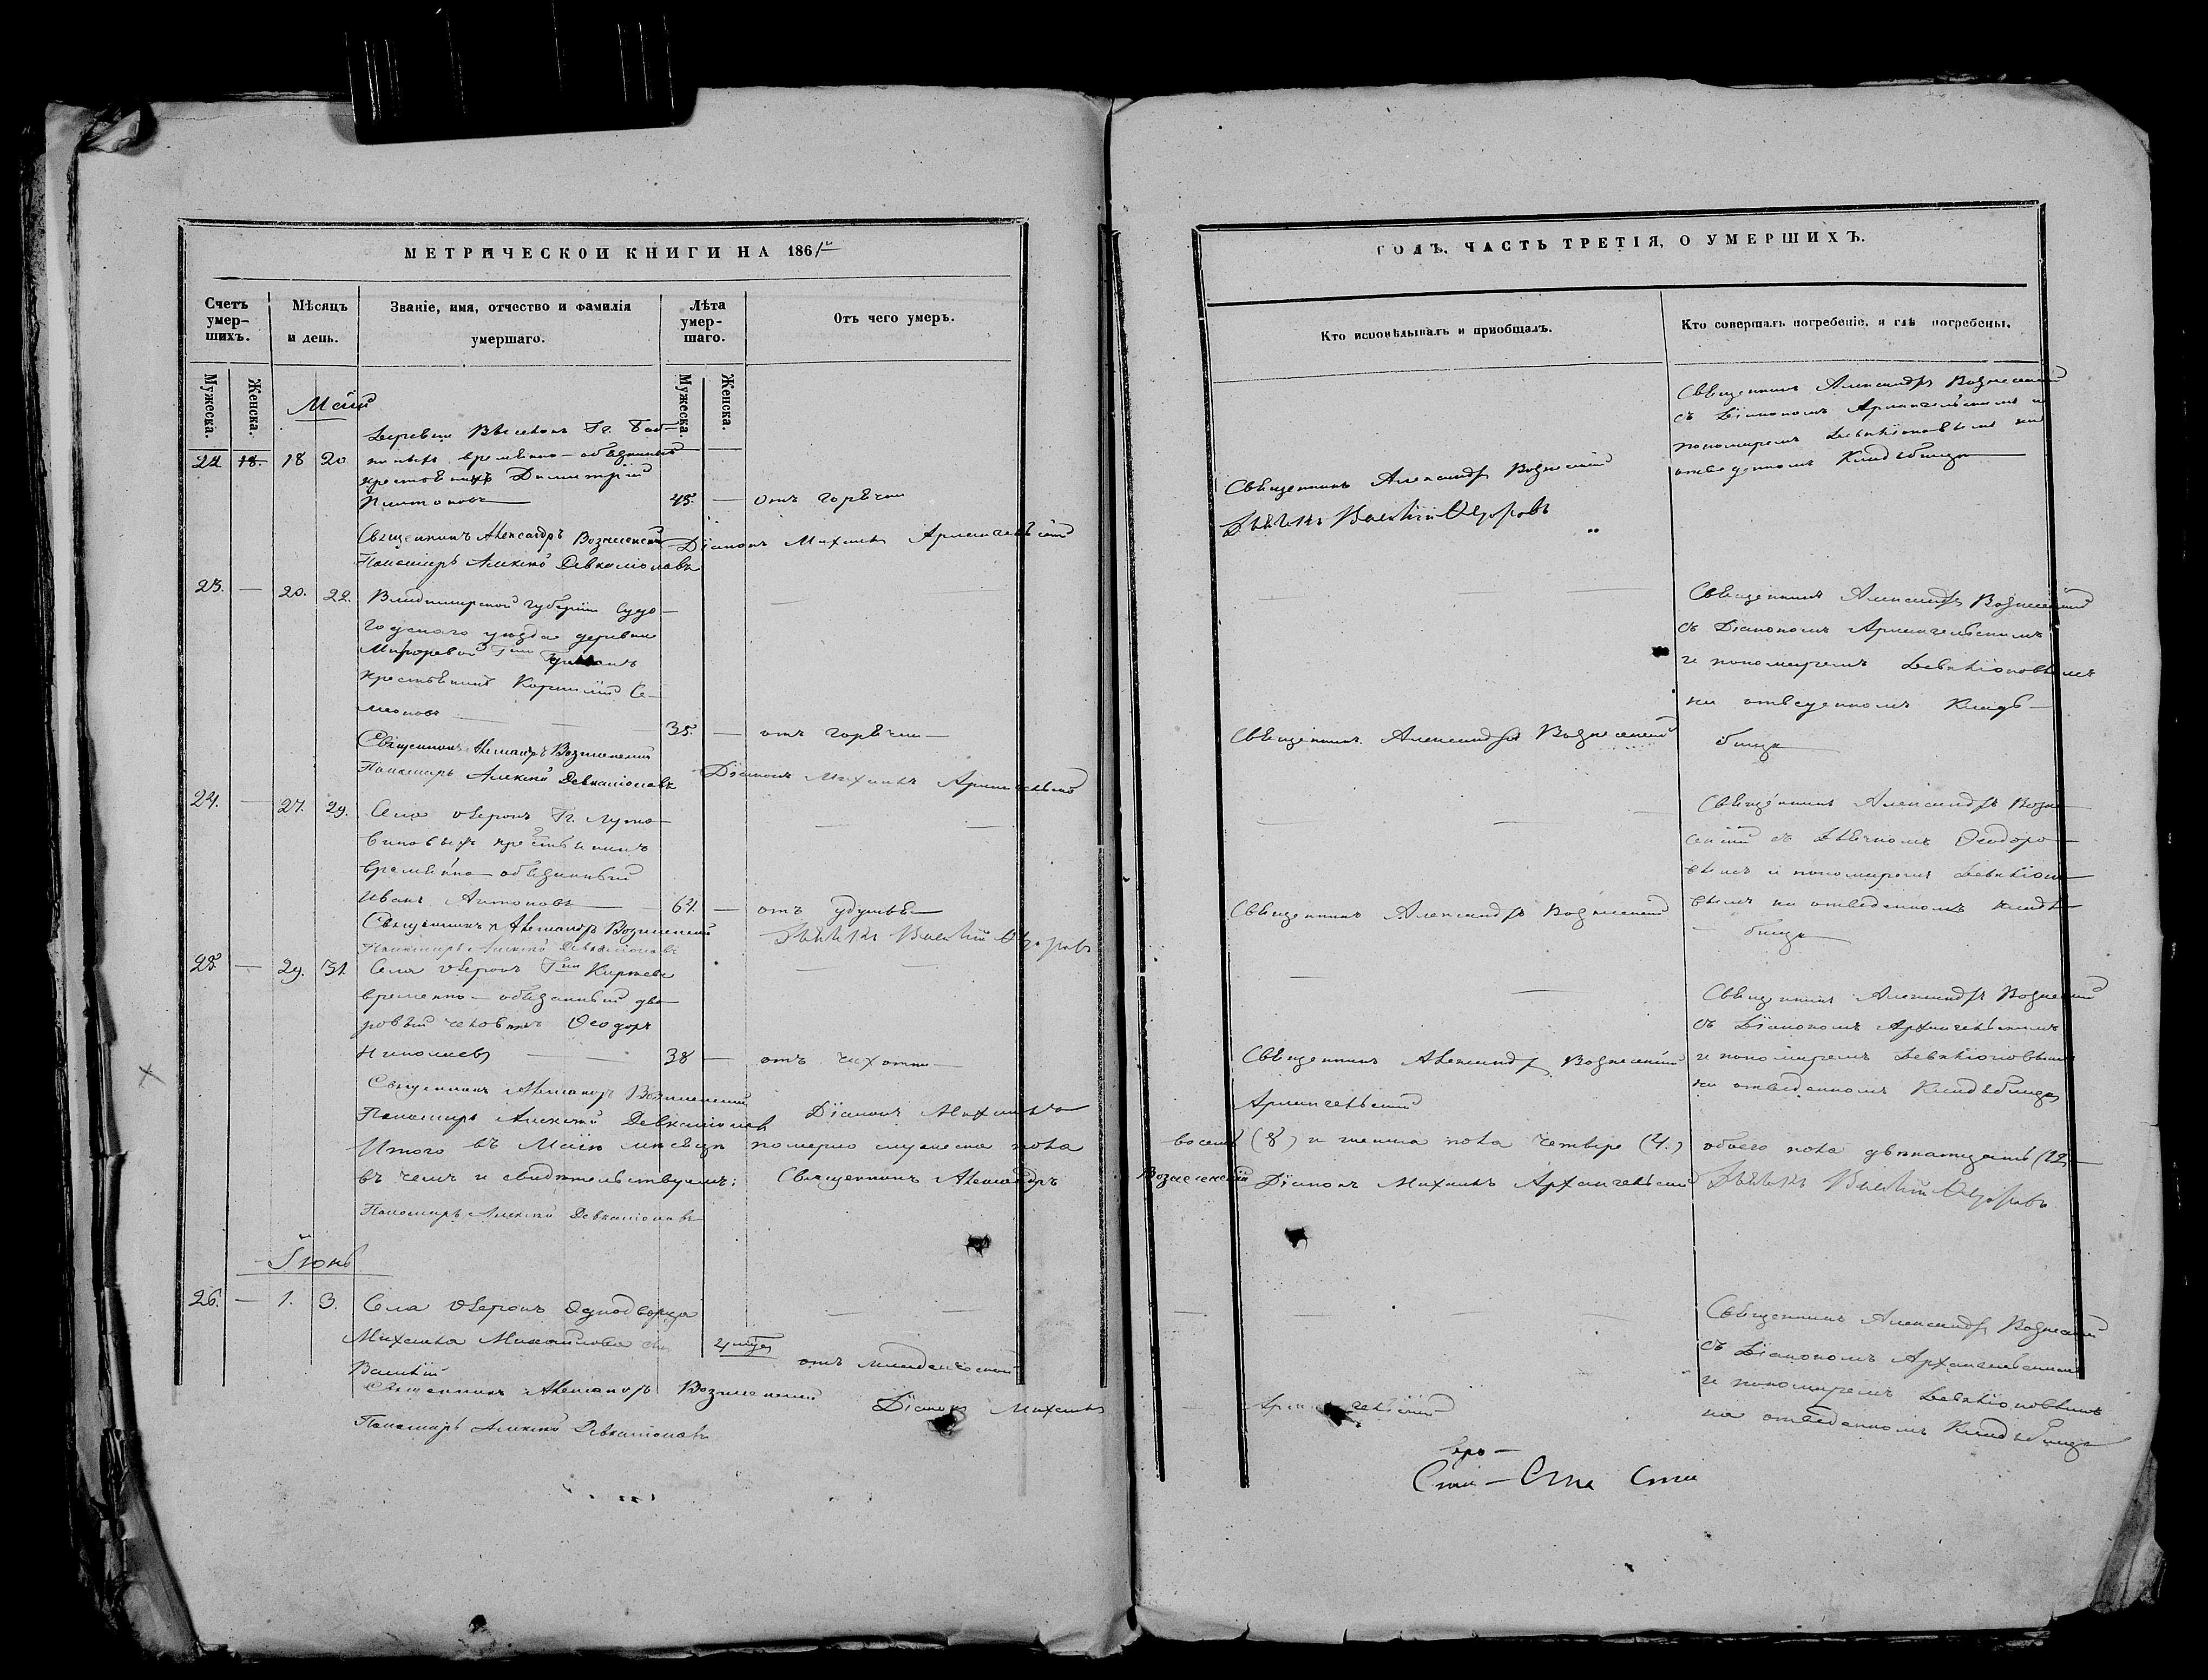 МЕТРИЧЕСКОЙ КНИГИ НА 1861й
Счетъ умер-
шихъ.
Мѣсяцъ
и день.
Званіе, имя, отчество и фамилія
умершаго.
Лѣта
умер-
шаго.
Отъ чего умеръ.
Мужеска.
Женска.
Мужеска.
Женска.
Май
Деревни
22 18. 18 20 временно-обязанный
крестьянинъ Димитрій
Платоновъ 45. — отъ горячки
Священникъ Александръ Вознесенскій Діаконъ Михаилъ Архангельскій
Пономарь Алексѣй Девкаліоновъ
23. — 20. 22. Владимирской губерніи Судо-
годскаго уѣзда деревни
крестьянинъ Корнилій Се-
меоновъ 35. — отъ горячки
Священникъ Александръ Вознесенскій
Пономарь Алексѣй Девкаліоновъ Діаконъ Михаилъ Архангельскій
24. — 27. 29. Села Озерокъ Гг.
крестьянинъ
временно-обязанный
Иванъ Антоновъ 64. — отъ удушья
Священникъ Александръ Вознесенскій
Пономарь Алексѣй Девкаліоновъ Дьячекъ Василій Ѳедоровъ
25. — 29. 31. Села Озерокъ
временно-обязанный дво-
ровый человѣкъ Ѳеодоръ
Николаевъ 38 — отъ чахотки
Священникъ Александръ Вознесенскій
Пономарь Алексѣй Девкаліоновъ Діаконъ Михаилъ
Итого въ Маѣ мѣсяцѣ померло мужеска пола
въ чемъ и свидѣтельствуемъ: Священникъ Александръ
Пономарь Алексѣй Девкаліоновъ
Іюнь
26. — 1. 3. Села Озерокъ Однодворца
Михаила Михайлова
Василій отъ младенческой
Священникъ Александръ Вознесенскій Діаконъ Михаилъ
Пономарь Алексѣй Девкаліоновъ
ГОДЪ, ЧАСТЬ ТРЕТІЯ, О УМЕРШИХЪ.
Кто исповѣдывалъ и пріобщалъ.
Кто совершалъ погребеніе, и гдѣ погребены.
Священникъ Александръ Вознесенскій
Дьячекъ Василій Ѳедоровъ
Священникъ Александръ Вознесенскій
съ Діакономъ Архангельскимъ и
пономаремъ Девкаліоновымъ на
отведенномъ Кладбищѣ
Священникъ Александръ Вознесенскій
Священникъ Александръ Вознесенскій
съ Діакономъ Архангельскимъ
и пономаремъ Девкаліоновымъ
на отведенномъ Кладб-
бищѣ
Священникъ Александръ Вознесенскій
Священникъ Александръ Возне-
сенскій съ Дьячкомъ Ѳеодоро-
вымъ и пономаремъ Девкаліоно-
вымъ на отведенномъ кладб-
бищѣ
Священникъ Александръ Вознесенскій
Архангельскій
Священникъ Александръ Вознесенскій
съ Діакономъ Архангельскимъ
и пономаремъ Девкаліоновымъ
на отведенномъ Кладбищѣ
восемь (8) и женска пола четыре (4.) обоего пола двѣнатцать (12)
Вознесенскій Діаконъ Михаилъ Архангельскій Дьячекъ Василій Ѳедоровъ
Архангельскій
Священникъ Александръ Вознесенскій
съ Діакономъ Архангельскимъ
и пономаремъ Девкаліоновымъ
на отведенномъ Кладбищѣ